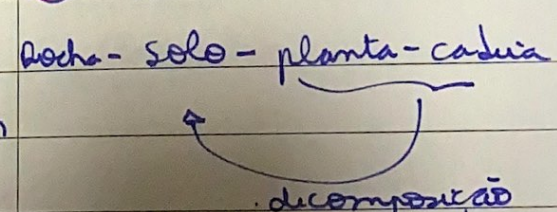 Rocha - solo - planta - cadeia
decomposição